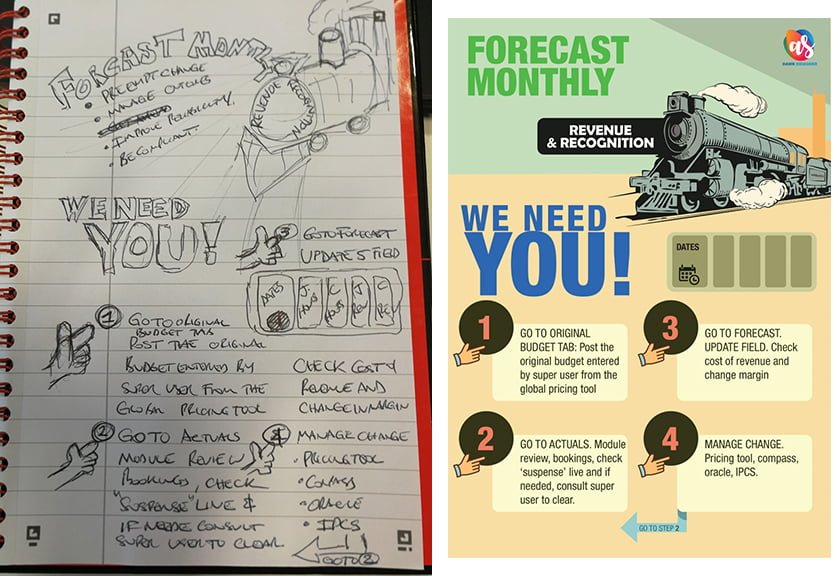 FORCAST MONTHLY
• PREEMPT CHANGE
• MANAGE
• IMPROVE
• BE COMPLIANT.
REVENUE RECOGNITION
WE NEED
YOU!
3 GO TO FORECAST
UPDATE 5 FIELD
DATES
1 GO TO ORIGINAL
BUDGET TAB
POST THE ORIGINAL
BUDGET ENTERED BY
SUPER USER FROM THE
GLOBAL PRICING TOOL
CHECK COST &
REVENUE AND
CHANGE IN MARGIN
2 GO TO ACTUALS
MODULE REVIEW
BOOKINGS, CHECK
"SUSPENSE" LIVE &
IF NEEDE CONSULT
SUPER USER TO CLEAR
4 MANAGE CHANGE
• PRICING TOOL
• COMPASS
• ORACLE
• IPCS
GOTO 2
FORECAST
MONTHLY
as
REVENUE
& RECOGNITION
WE NEED
YOU!
DATES
1
GO TO ORIGINAL
BUDGET TAB: Post the
original budget entered
by super user from the
global pricing tool
2
GO TO ACTUALS. Module
review, bookings, check
‘suspense’ live and if
needed, consult super
user to clear.
3
GO TO FORECAST.
UPDATE FIELD. Check
cost of revenue and
change margin
4
MANAGE CHANGE.
Pricing tool, compass,
oracle, IPCS.
GO TO STEP 2